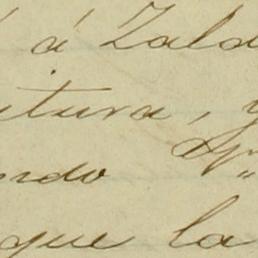 á Zald
itura, y
ndo
que la